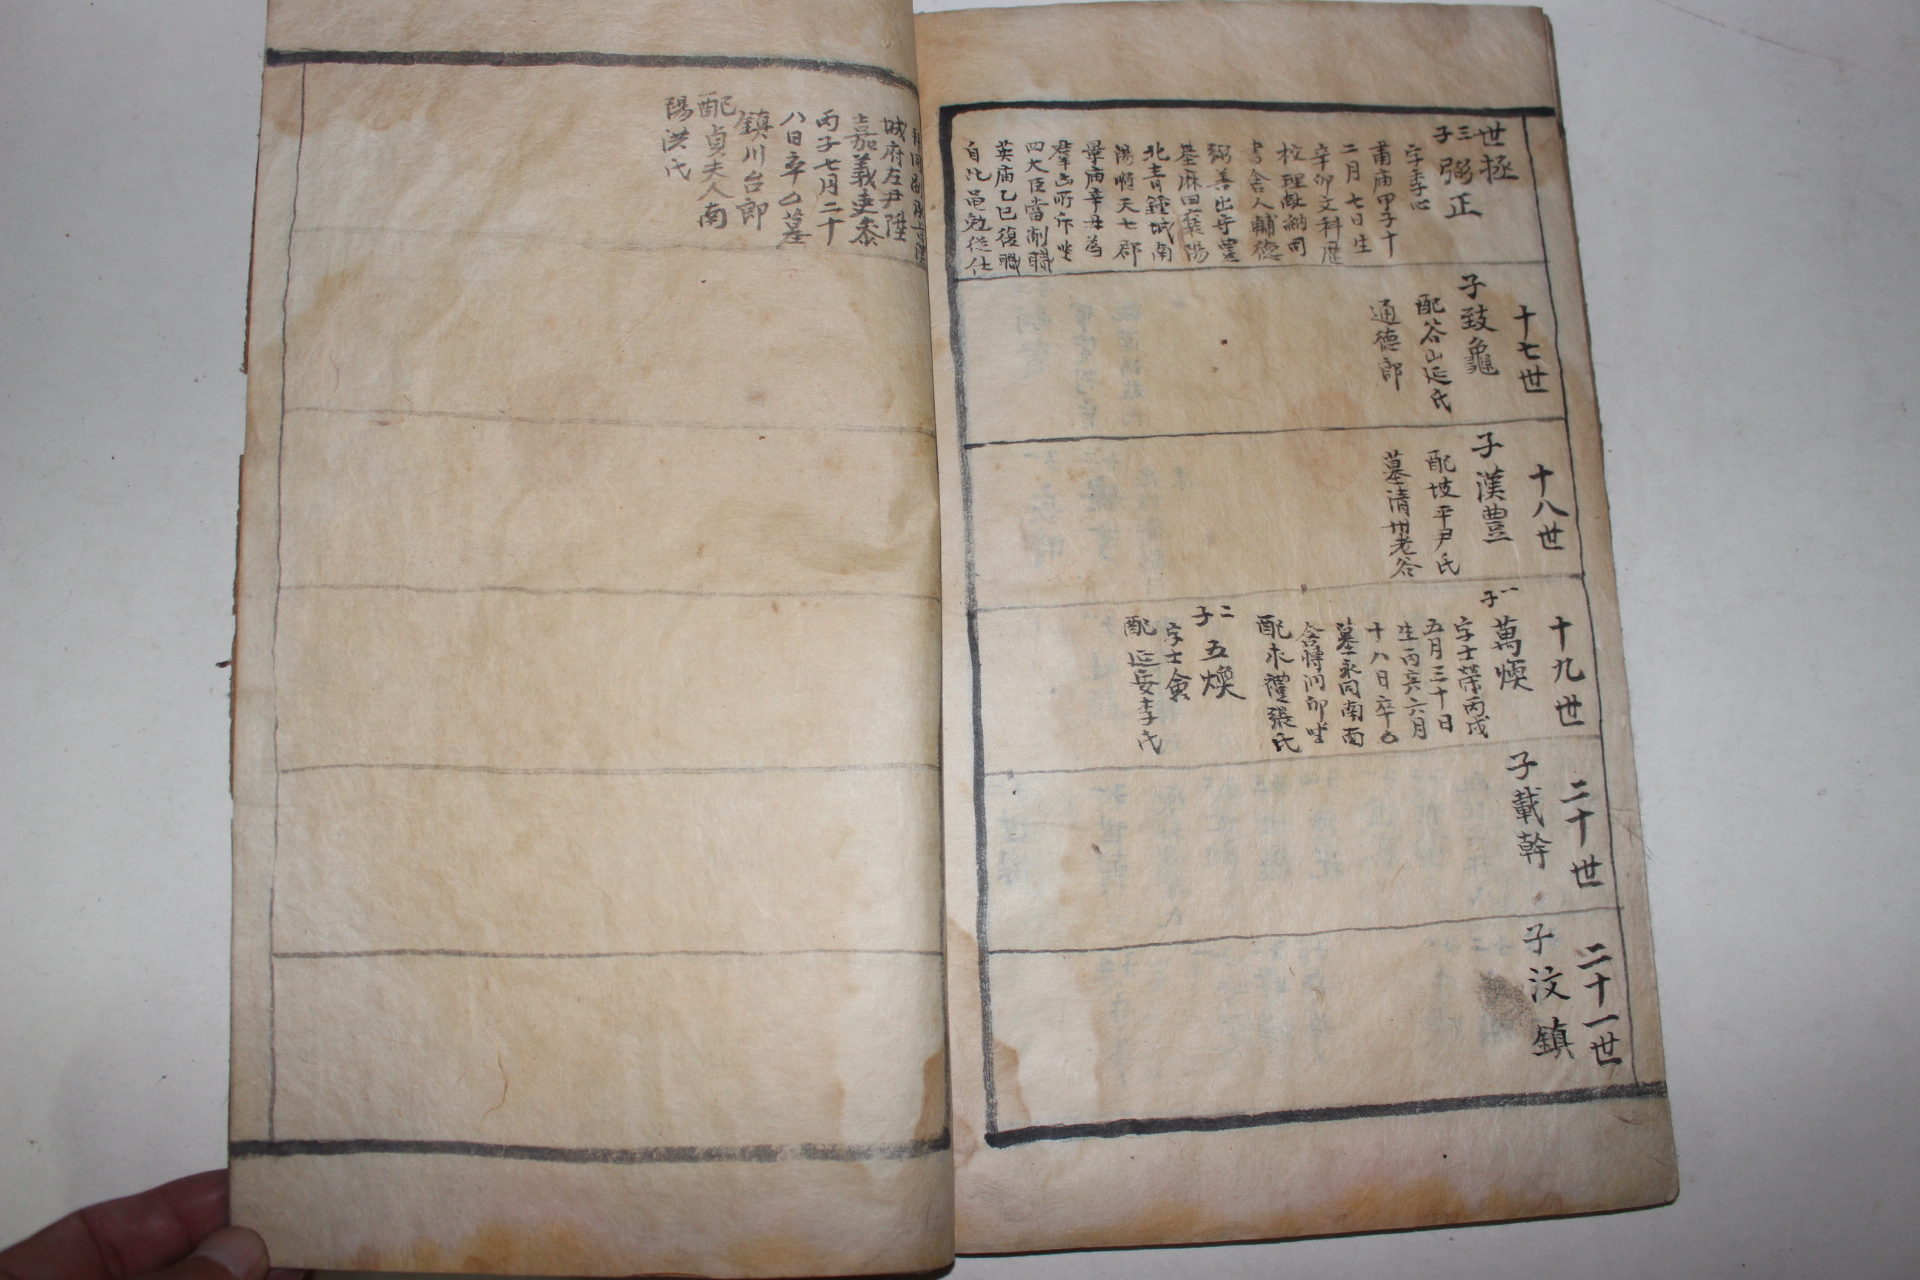 世拯
三子 弼正
字季心
肅庙甲子十
二月七日生
辛卯文科歷
校理献納司
書舍人輔德
弼善出守豊
基麻田襄陽
北青鍾城南
陽順天七郡
景庙辛丑為
羣凶所斥坐
四大臣當削職
英庙乙巳復職
自比邑勉從仕
城府左尹陞
嘉義吏叅
丙子七月二十
八日卒 墓
鎮川台郎
配貞夫人南
陽洪氏
十七世
子致龜
配谷山延氏
通德郎
十八世
子漢豊
配坡平尹氏
墓清州老谷
十九世
一子 萬煐
字士榮丙戌
五月三十日
生丙亥六月
十八日卒
墓永同南面
含博洞卯坐
配求禮張氏
二子 五煥
字士
配延安李氏
二十世
子載幹
二十一世
子汶鎮